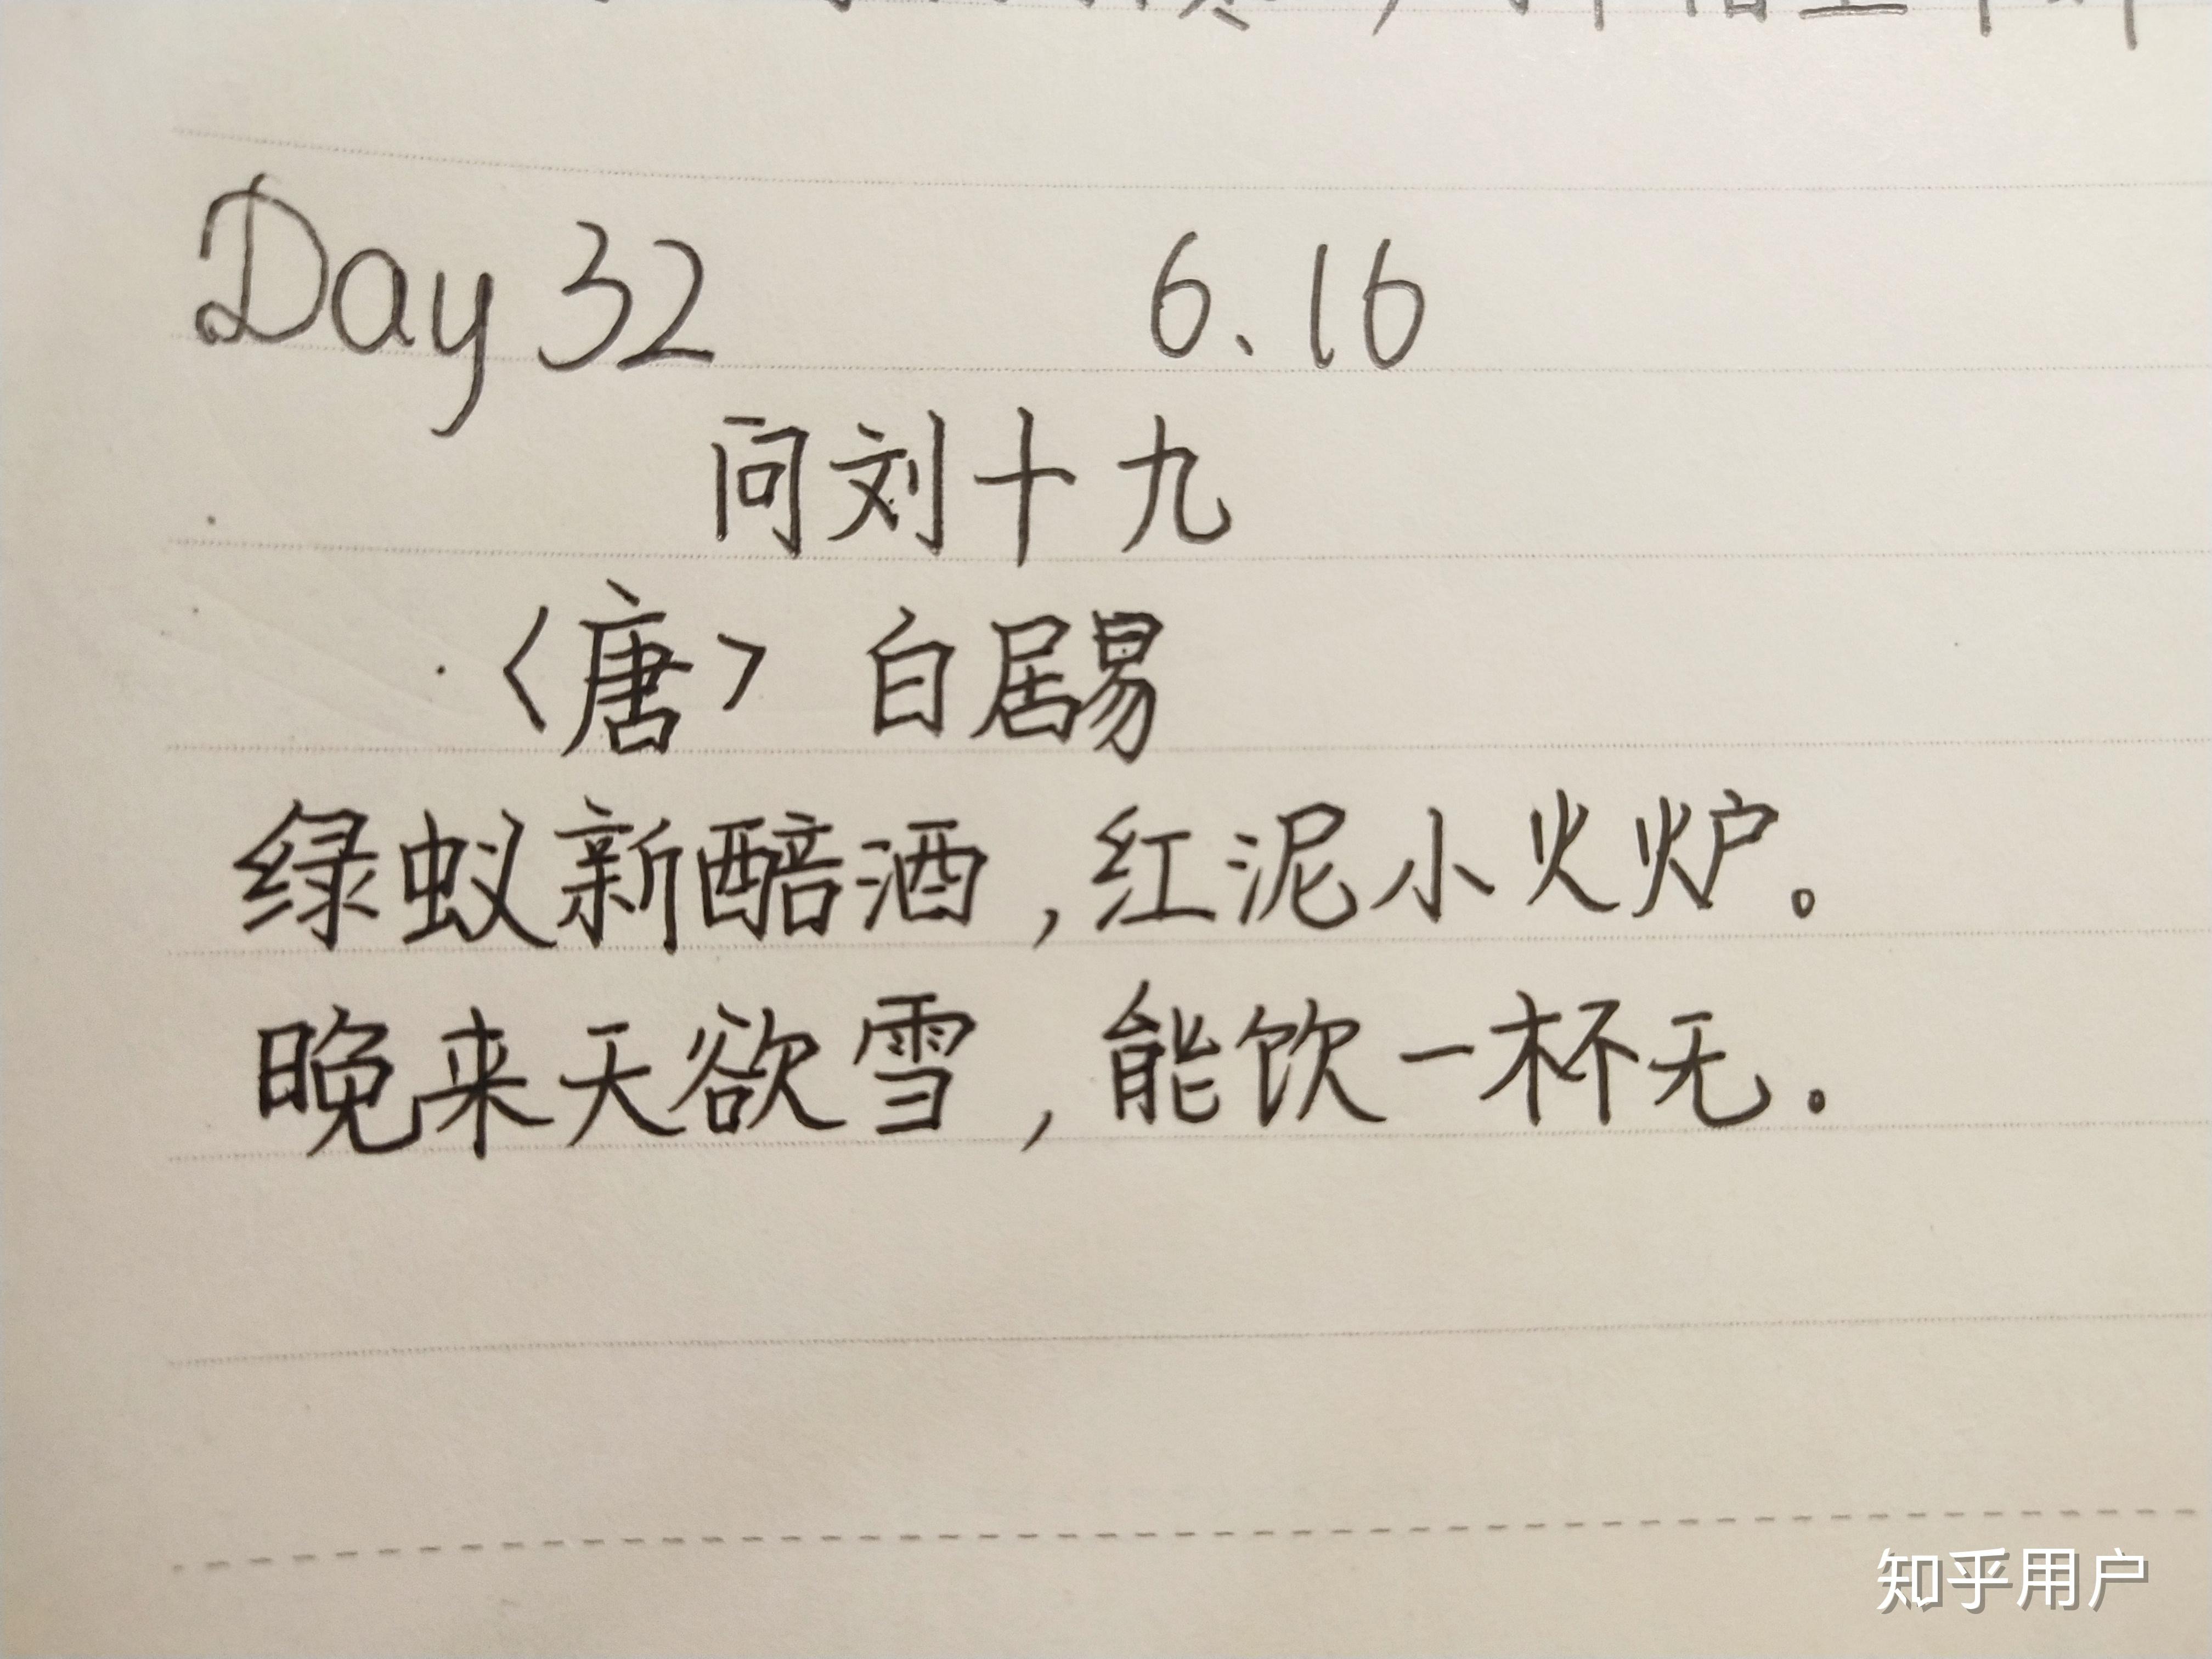 Day 32 6.16
问刘十九
〈唐〉白居易
绿蚁新醅酒，红泥小火炉。
晚来天欲雪，能饮一杯无.
知乎用户